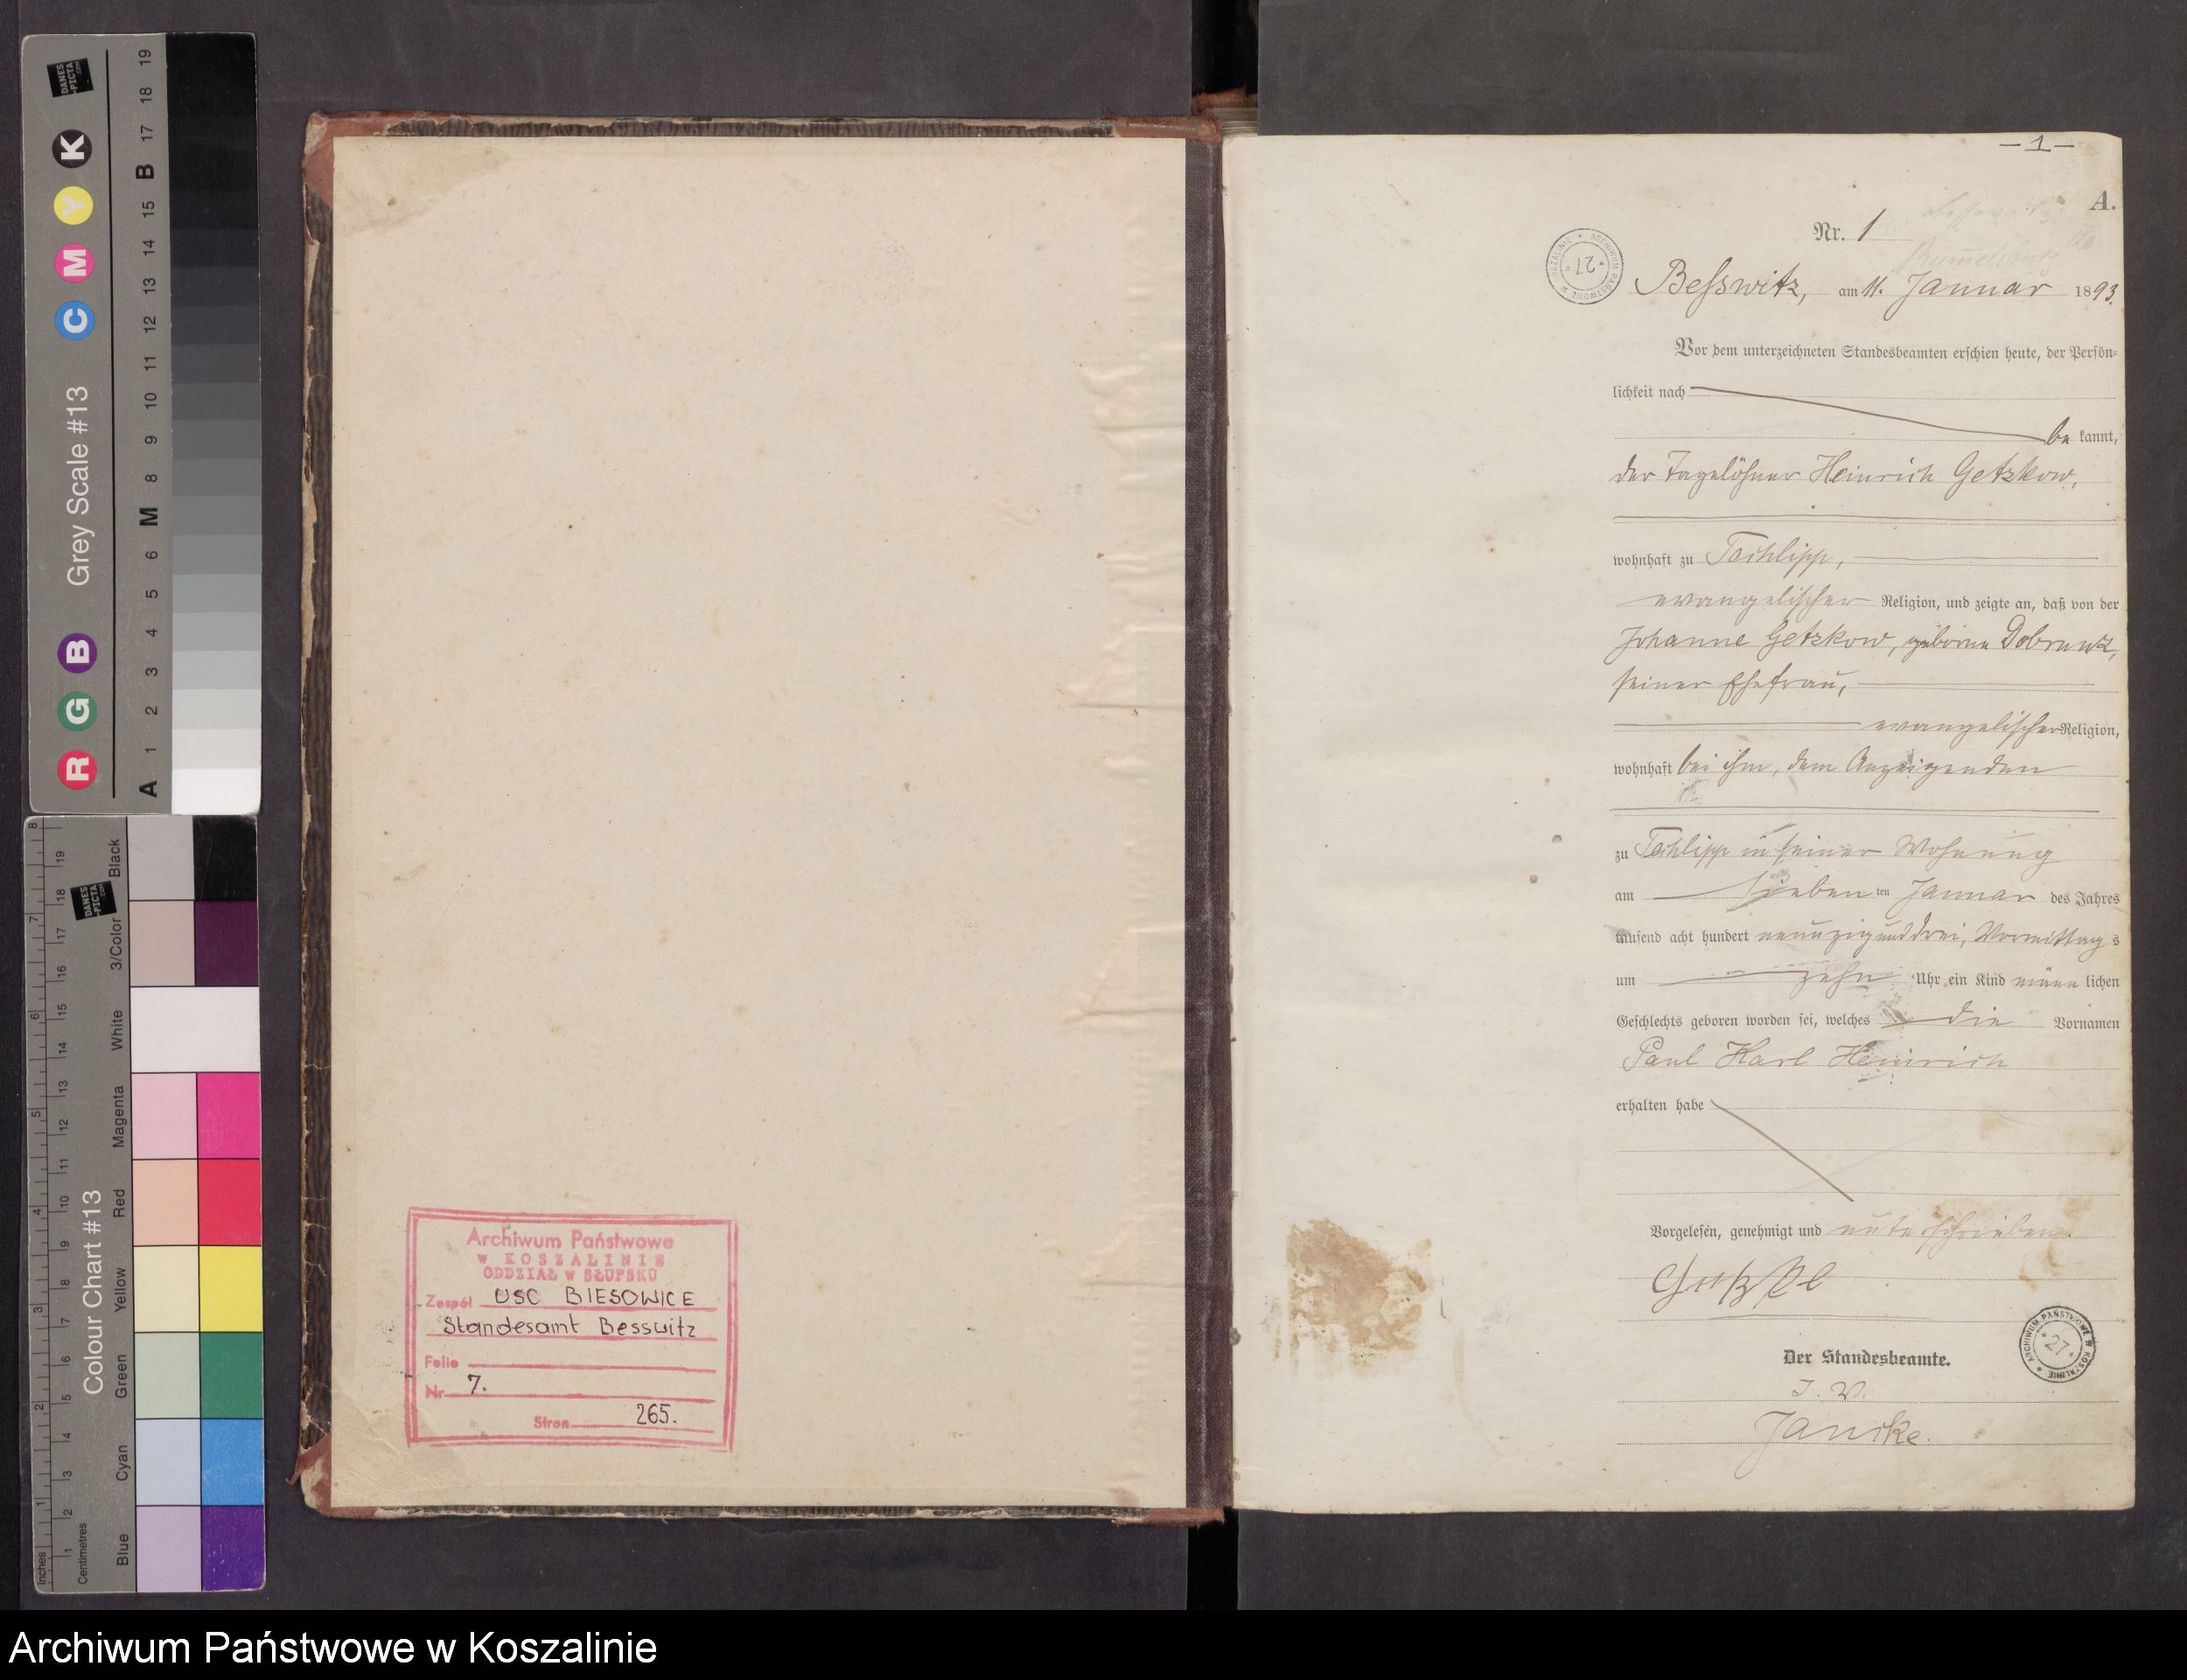 DANES
-PICTA
.COM
A 1 2 3 4 5 6 M 8 9 10 11 12 13 14 15 B 17 18 19
R G B
Grey Scale #13
C M Y K
DANES
-PICTA
.COM
Inches 1 2 3 4 5 6 7 8
Centimetres 1 2 3 4 5 6 7 8 9 10 11 12 13 14 15 16 17 18 19
Colour Chart #13
Blue Cyan Green Yellow Red Magenta White 3/Color Black
Archiwum Państwowe
W KOSZALINIE
ODDZIAŁ W SŁUPSKU
Zespół USC BIESOWICE
Standesamt Besswitz
Folio
Nr 7.
Stron 265.
— 1 —
A.
Nr. 1
ARCHIWUM PAŃSTWOWE W KOSZALINIE
27
Beſswitz, am 11. Januar 1893.
Vor dem unterzeichneten Standesbeamten erschien heute, der Persön-
lichkeit nach
be kannt,
der Tagelöhner Heinrich Getzkow,
wohnhaft zu Techlipp,
evangelischer Religion, und zeigte an, daß von der
Johanne Getzkow, geborne
seiner Ehefrau,
evangelischer Religion,
wohnhaft bei ihm, dem Anzeigenden
zu Techlipp in seiner Wohnung
am sieben ten Januar des Jahres
tausend acht hundert neunzig und drei, Vormittag s
um zehn Uhr ein Kind männ lichen
Geschlechts geboren worden sei, welches die Vornamen
Paul Karl Heinrich
erhalten habe
Vorgelesen, genehmigt und unterschrieben
Der Standesbeamte.
ARCHIWUM PAŃSTWOWE W KOSZALINIE
27
J. V.
Janike.
Archiwum Państwowe w Koszalinie